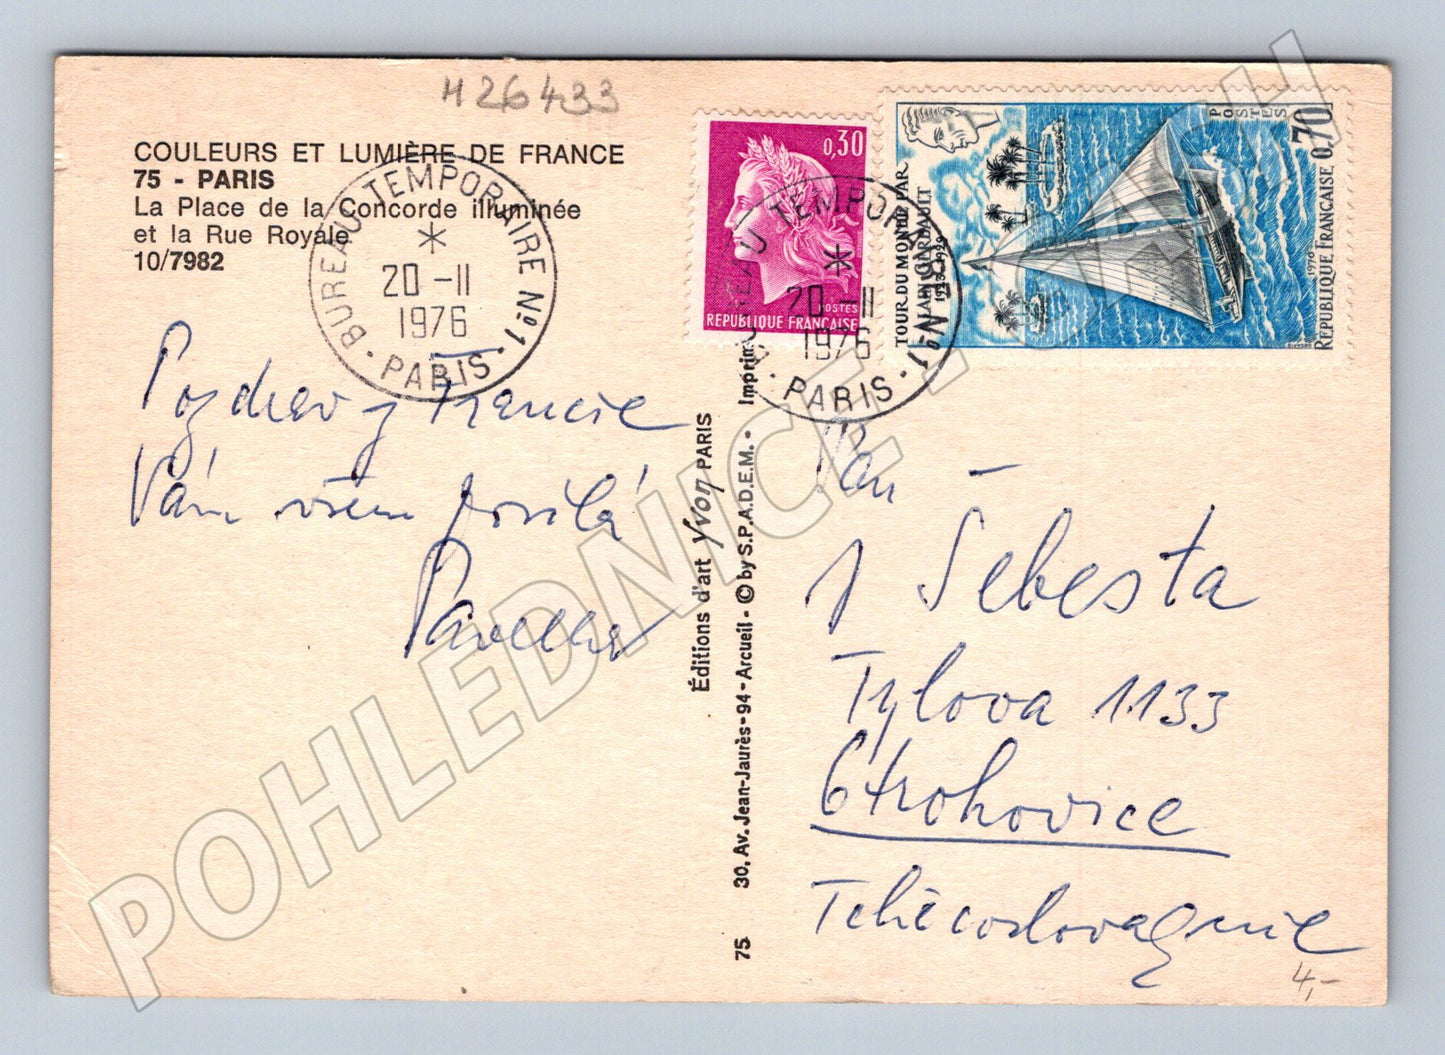 H26433
COULEURS ET LUMIÈRE DE FRANCE
75 - PARIS
La Place de la Concorde illuminée
et la Rue Royale
10/7982
BUREAU TEMPORAIRE Nº1
20 -11
1976
PARIS
Pozdrav z Francie
Vám všem posílá
0,30
POSTES
REPUBLIQUE FRANÇAISE
BUREAU TEMPORAIRE Nº1
20 -11
1976
PARIS
TOUR DU MONDE PAR
ALAIN GERBAULT
1923-1929
POSTES
0,70
1970
REPUBLIQUE FRANÇAISE
Éditions d'art Yvon PARIS
75 30, Av. Jean-Jaurès - 94 - Arcueil - © by S.P.A.D.E.M. - Imprim
Pan
J Šebesta
Tylova 1133
Otrokovice
Tchécoslovaquie
4,-